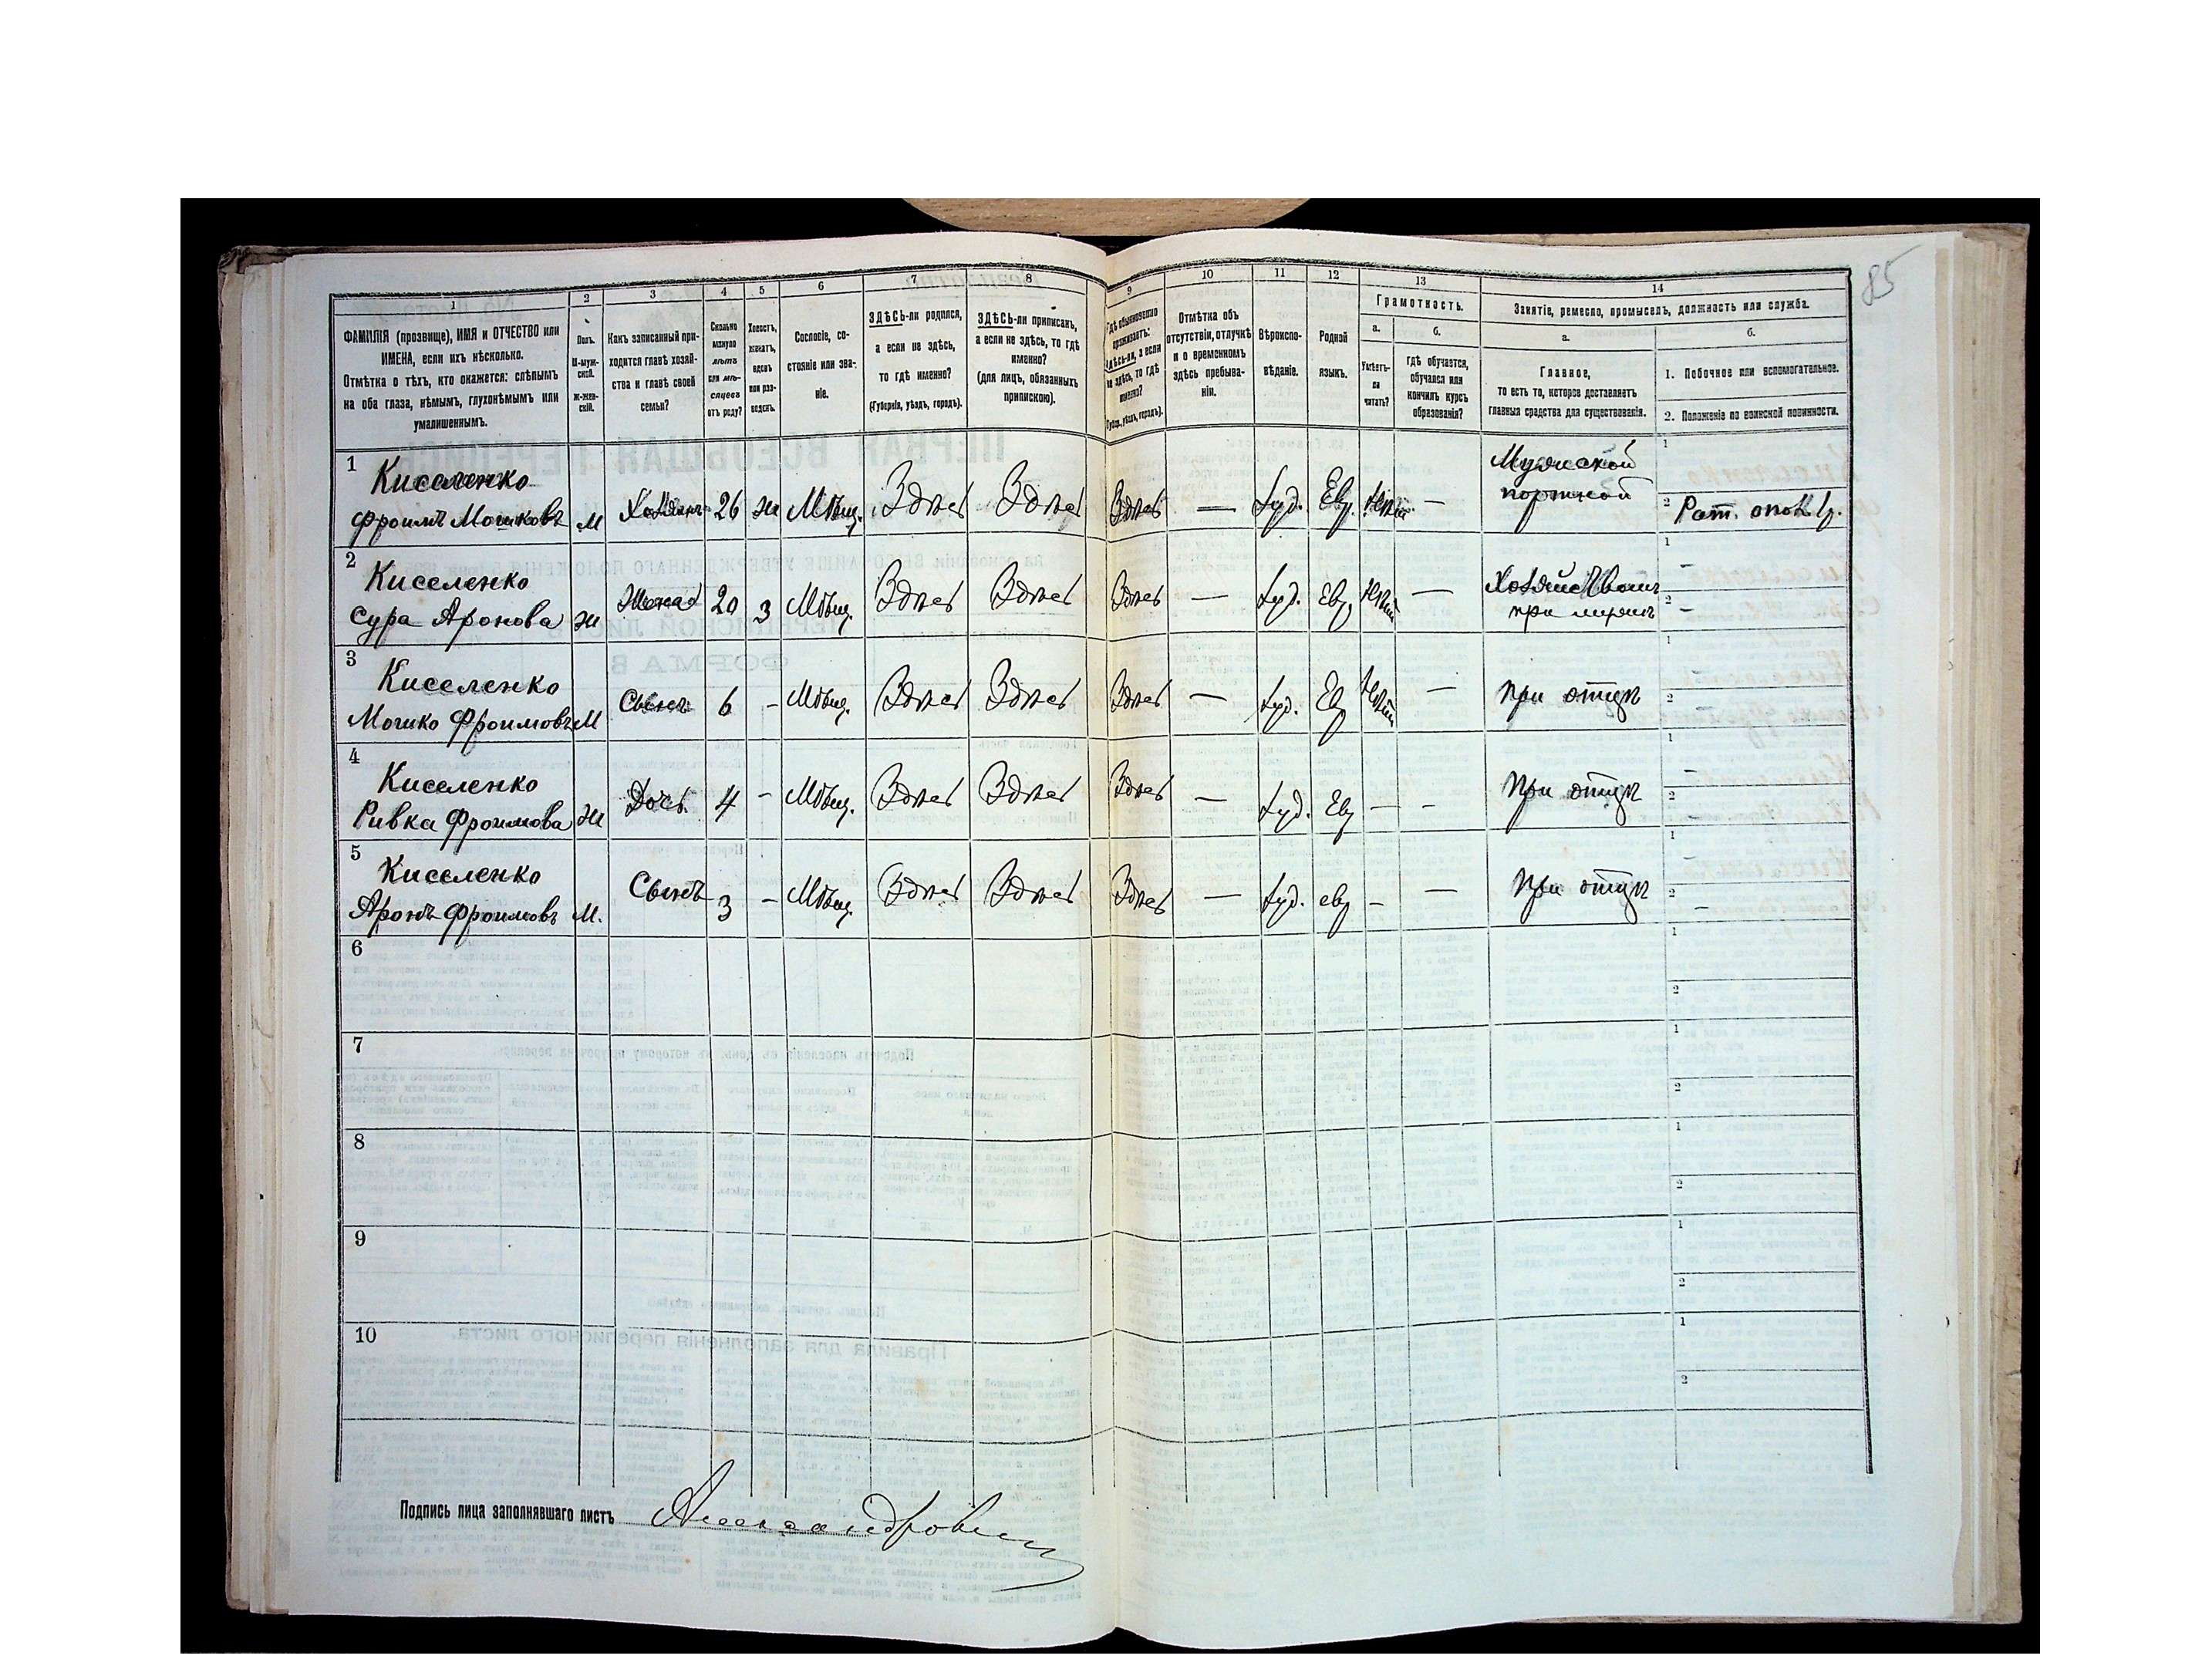 85
1
2
3
4
5
6
7
8
9
10
11
12
13
14
ФАМИЛІЯ (прозвище), ИМЯ и ОТЧЕСТВО или
ИМЕНА, если ихъ нѣсколько.
Отмѣтка о тѣхъ, кто окажется: слѣпымъ
на оба глаза, нѣмымъ, глухонѣмымъ или
умалишеннымъ.
Полъ.
М-муж-
ской.
Ж-жен-
скій.
Какъ записанный при-
ходится главѣ хозяй-
ства и главѣ своей
семьи?
Сколько
минуло
лѣтъ
или мѣ-
сяцевъ
отъ роду?
Холостъ,
женатъ,
вдовъ
или раз-
веденъ.
Сословіе, со-
стояніе или зва-
ніе.
ЗДѢСЬ-ли родился,
а если не здѣсь,
то гдѣ именно?
(Губернія, уѣздъ, городъ).
ЗДѢСЬ-ли приписанъ,
а если не здѣсь, то гдѣ
именно?
(для лицъ, обязанныхъ
припискою).
Гдѣ обыкновенно
проживаетъ:
здѣсь-ли, а если
не здѣсь, то гдѣ
именно?
(Губ., уѣздъ, городъ).
Отмѣтка объ
отсутствіи, отлучкѣ
и о временномъ
здѣсь пребыва-
ніи.
Вѣроиспо-
вѣданіе.
Родной
языкъ.
Грамотность.
а.
Умѣетъ-
ли
читать?
б.
Гдѣ обучается,
обучался или
кончилъ курсъ
образованія?
Занятіе, ремесло, промыселъ, должность или служба.
а.
Главное,
то есть то, которое доставляетъ
главныя средства для существованія.
б.
1. Побочное или вспомогательное.
2. Положеніе по воинской повинности.
1
Киселенко
Фроимъ Мошковъ М Хозяинъ 26 ж Мѣщ. Здѣсь Здѣсь Здѣсь — Іуд. Евр. Нѣтъ —
Мужской
портной
1
2 Рат. опол. 1р.
2
Киселенко
Сура Аронова Ж Жена 20 з Мѣщ. Здѣсь Здѣсь Здѣсь — Іуд. Евр. Нѣтъ —
при мужѣ
1 —
2 —
3
Киселенко
Мошко Фроимовъ М Сынъ 6 — Мѣщ. Здѣсь Здѣсь Здѣсь — Іуд. Евр Нѣтъ — при отцѣ
1 —
2 —
4
Киселенко
Ривка Фроимова Ж Дочь 4 — Мѣщ. Здѣсь Здѣсь Здѣсь — Іуд. Евр — — при отцѣ
1 —
2 —
5
Киселенко
Аронъ Фроимовъ М. Сынъ 3 — Мѣщ. Здѣсь Здѣсь Здѣсь — Іуд. евр — — при отцѣ
1 —
2 —
6
1
2
7
1
2
8
1
2
9
1
2
10
1
2
Подпись лица заполнявшаго листъ